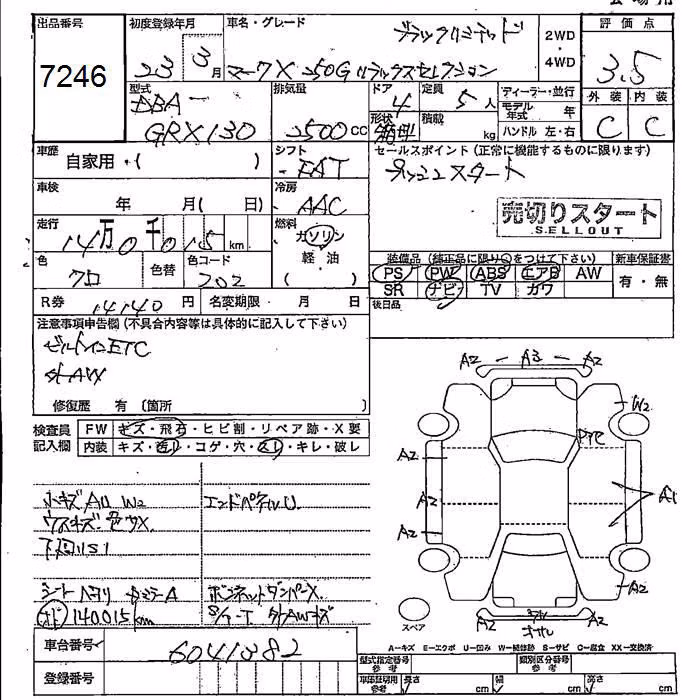 会場用
出品番号
7246
初度登録年月
23 3月
車名・グレード
ブラックリミテッド
マークX 250G リラックスセレクション
2WD
・
4WD
評価点
3.5
外装 内装
C C
型式
DBA-
GRX130
排気量
2500 CC
ドア
4
形状
定員
5人
積載
kg
ディーラー・並行
モデル年式 年
ハンドル 左・右
車歴
自家用・( )
シフト
FAT
セールスポイント(正常に機能するものに限ります)
プッシュスタート
売切りスタート
SELLOUT
車検
年 月( 日)
冷房
AAC
走行
14万0千015 km
燃料
ガソリン
軽・油
( )
色
クロ
色替
色コード
202
装備品(純正品に限り○をつけて下さい)
PS PW ABS エアB AW
SR ナビ TV カワ
新車保証書
有・無
後日品
R券 14140円
名変期限 月 日
注意事項申告欄(不具合内容等は具体的に記入して下さい)
ビルトインETC
外AW
修復歴 有 〔箇所 〕
検査員
記入欄
FW キズ・飛石・ヒビ割・リペア跡・X要
内装 キズ・汚レ・コゲ・穴・スレ・キレ・破レ
小キズ AU W2
エンドペイントU.
下回リS1
オド 140015km
ボンネットダンパーX.
S/T-T. 外AWキズ
車台番号 6041382
登録番号
A2 - A3 - A2
W2
A2
A2
A2
A1
A2
A2
A2
スペア
A−キズ E−エクボ U−凹み W−補修跡 S−サビ C−腐食 XX−交換済
型式指定番号
参考
類別区分番号
参考
車庫証明用
参考
長さ cm 幅 cm 高さ cm